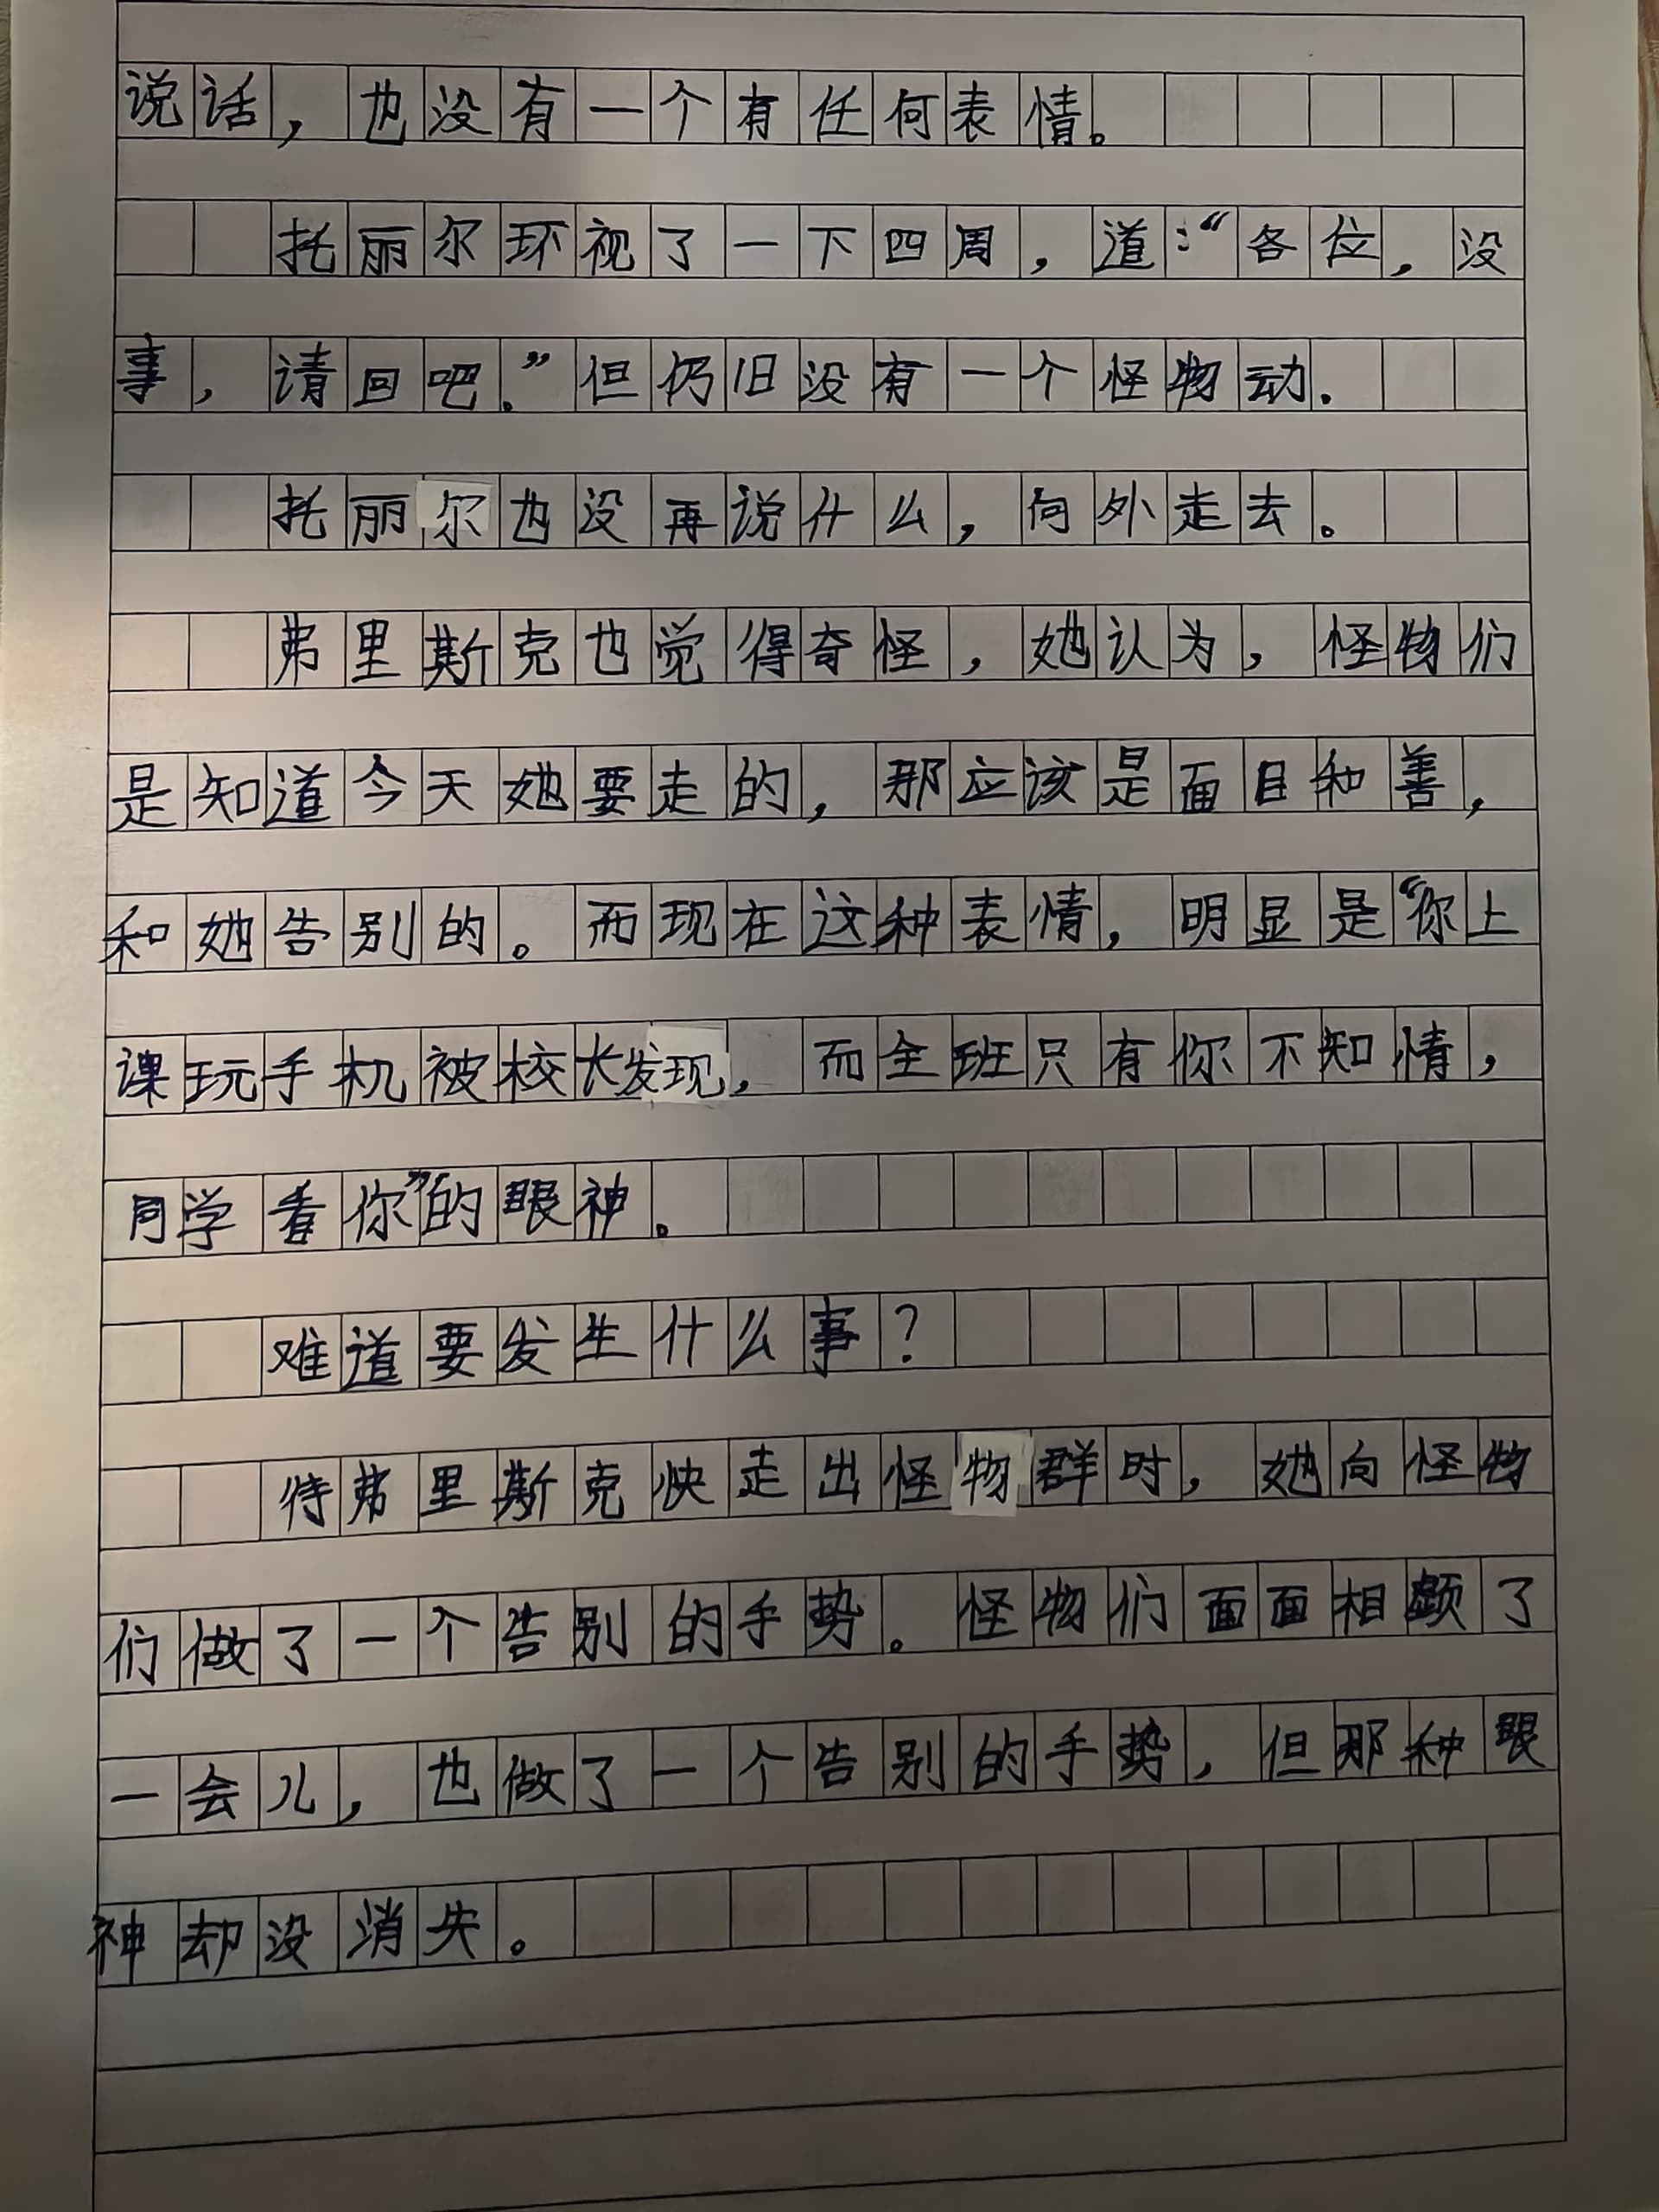 说话，也没有一个有任何表情。
托丽尔环视了一下四周，道：“各位，没
事，请回吧。”但仍旧没有一个怪物动．
托丽尔也没再说什么，向外走去。
弗里斯克也觉得奇怪，她认为，怪物们
是知道今天她要走的，那应该是面目和善，
和她告别的。而现在这种表情，明显是“你上
课玩手机被校长发现，而全班只有你不知情，
同学看你”的眼神。
难道要发生什么事？
待弗里斯克快走出怪物群时，她向怪物
们做了一个告别的手势。怪物们面面相觑了
一会儿，也做了一个告别的手势，但那种眼
神却没消失。